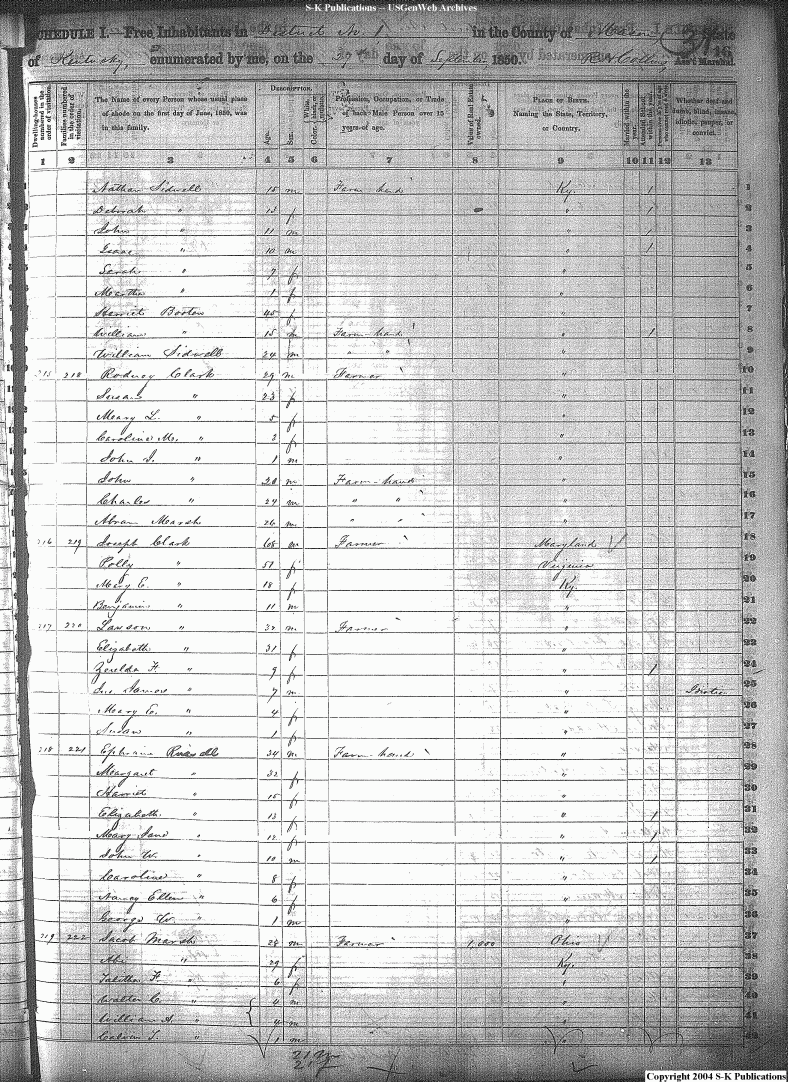 S-K Publications -- USGenWeb Archives
SCHEDULE I.—Free Inhabitants in District No. 1 in the County of Mason State
of Kentucky, enumerated by me, on the day of September 1850. Ass't Marshal.
Dwelling-houses numbered in the order of visitation.
Families numbered in the order of visitation.
The Name of every Person whose usual place of abode on the first day of June, 1850, was in this family.
Description.
Age.
Sex.
Color, White, black, or mulatto.
Profession, Occupation, or Trade of each Male Person over 15 years of age.
Value of Real Estate owned.
Place of Birth. Naming the State, Territory, or Country.
Married within the year.
Attended School within the year.
Whether deaf and dumb, blind, insane, idiotic, pauper, or convict.
1 2 3 4 5 6 7 8 9 10 11 12 13
Nathan Sidwell 15 m Farm hand Ky. 1 1
Deborah " 13 f " 1 2
John " 11 m " 1 3
Isaac " 10 m " 1 4
Sarah " 7 f " 5
Martha " 1 f 6
Harriet Booton 45 f 7
William " 15 m Farm-hand " 1 8
William Sidwell 24 m " " " 9
215 218 Rodney Clark 29 m Farmer " 10
Susan " 23 f " 11
Mary L. " 5 f " 12
Caroline M. " 2 f " 13
John I. " 1 m " 14
John " 20 m Farm-hand " 15
Charles " 24 m " " " 16
Abram Marsh 26 m " " " 17
216 219 Joseph Clark 68 m Farmer Maryland 18
Polly " 51 f Virginia 19
Mary E. " 18 f Ky. 20
Benjamin " 11 m " 21
217 220 Lawson " 32 m Farmer " 22
Elizabeth " 31 f " 23
Zerelda F. " 9 f " 1 24
Jas. James " 7 m " Idiotic 25
Mary E. " 4 f " 26
Susan " 1 f " 27
218 221 Ephraim Russell 34 m Farm-hand " 28
Margaret " 32 f " 29
Harriet " 15 f " 30
Elizabeth " 13 f " 1 31
Mary Jane " 12 f " 1 32
John W. " 10 m " 1 33
Caroline " 8 f " 34
Nancy Ellen " 6 f " 35
George W. " 1 m " 36
219 222 Jacob Marsh 28 m Farmer 1,000 Ohio 37
" 29 f Ky. 38
Talitha F. " 6 f " 39
Walter C. " 4 m " 40
William A. " 4 m " 41
Calvin T. " 1 m " 42
Copyright 2004 S-K Publications